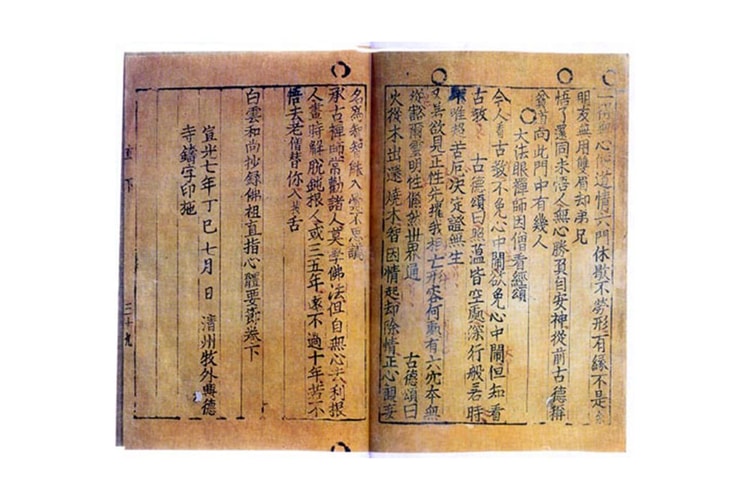 一得無心便道情六門休歇不勞形有緣不是余
朋友無用雙眉却弟兄
悟了還同未悟人無心勝負自安神從前古德稱
貧道向此門中有幾人
大法眼禪師因僧看經頌
今人看古教不免心中鬧欲免心中鬧但知看
古教 古德頌曰照蘊皆空處深行般若時
雖超苦厄決定證無生
欲見正性先摧我相亡形容何處有六穴本無
從豁爾雲明性出界通 古德頌曰
火後木出深燒木智因情起却除情正心觀妄
名為知智能入不思議
承古禪師常勸諸人莫學佛法但自無心去利根
人晝時解脫鈍根人或三五年遠不過十年若不
悟去老僧替你入舌
白雲和尚抄錄佛祖直指心體要節卷下
宣光七年丁巳七月 日 清州牧外興德
寺鑄字印施
直 下 三十九